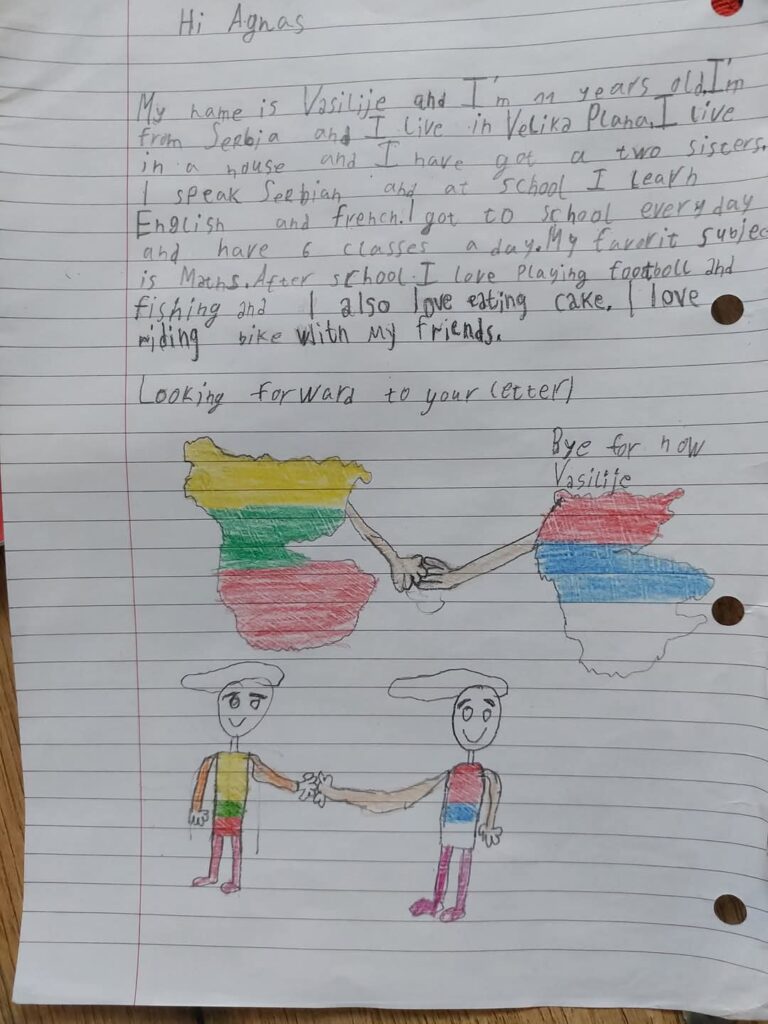 Hi Agnas
My name is Vasilije and I'm 11 years old.I'm
from Serbia and I live in Velika Plana.I live
in a house and I have got a two sisters.
I speak Serbian and at school I learn
English and french.I got to school every day
and have 6 classes a day.My favorit subjec
is Maths.After school.I love Playing football and
fishing and I also love eating cake. I love
riding bike with My friends.
Looking forward to your letter)
Bye for now
Vasilije